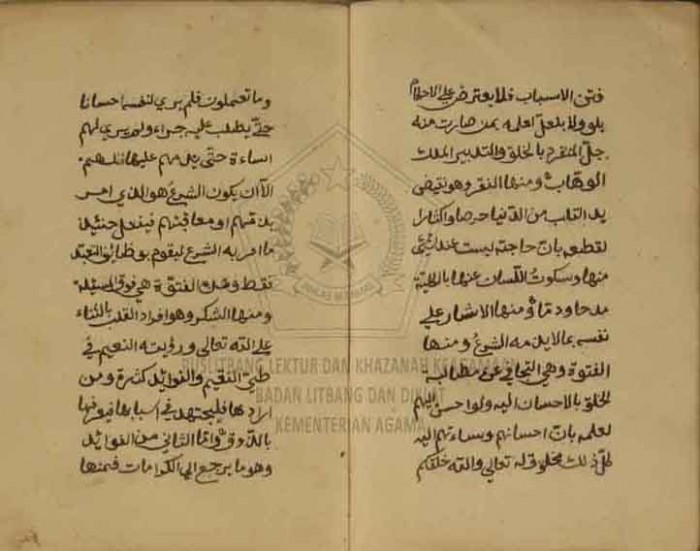 فتن الاسباب فلا يعترض على الاحكام
بلو ولا بلعل لعلمه بمن صارت منه
جل المنفرد بالخلق والتدبير الملك
الوهاب ومنها الفقر وهو نقيض
يد القلب من الدنيا حرصا واكثارا
لقطعه بان حاجته ليست عند شئ
منها وسكوت اللسان عنها بالكلية
مدحا وذما ومنها الايثار على
نفسه بما لا يذمه الشرع ومنها
الفتوة وهي التجافي عن مطالبة
الخلق بالاحسان اليه ولو احسن اليهم
لعلمه بان احسانهم واساءتهم اليه
كل ذلك مخلوق له تعالى والله خلقكم
وما تعملون فلم يرى لنفسه احسانا
حتى يطلب عليه جزاء ولم يرى لهم
اساءة حتى يذمهم عليها
الا ان يكون الشرع هو الذي امر
بذمهم او معاقبتهم فيفعل حينئذ
ما امر به الشرع ليقوم بوظائف التعبد
فقط وهذه الفتوة هي فوق المسئلة
ومنها الشكر وهو افراد القلب بالثناء
على الله تعالى ورؤيته النعيم في
طي النقيم والفوائد كثيرة ومن
ارادها فليجتهد في اسبابها فيعرفها
بالذوق واما الثاني من الفوائد
وهو ما يرجع الى الكرامات فمنها
PUSLITBANG LEKTUR DAN KHAZANAH KEAGAMAAN
BADAN LITBANG DAN DIKLAT
KEMENTERIAN AGAMA